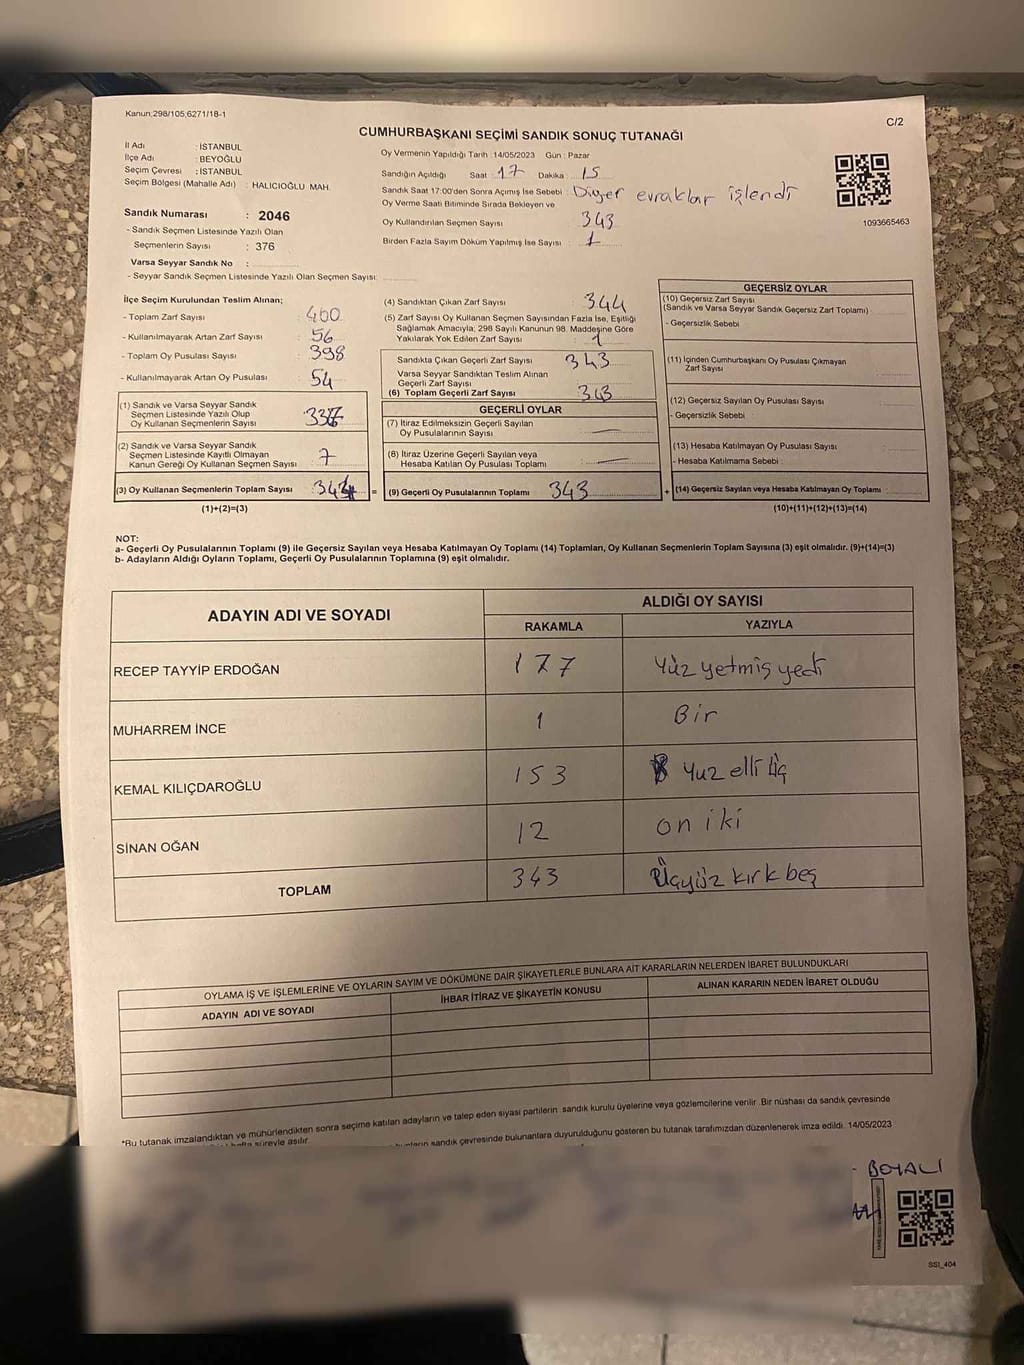 Kanun;298/105;6271/18-1
C/2
CUMHURBAŞKANI SEÇİMİ SANDIK SONUÇ TUTANAĞI
İl Adı : İSTANBUL
İlçe Adı : BEYOĞLU
Seçim Çevresi : İSTANBUL
Seçim Bölgesi (Mahalle Adı) : HALICIOĞLU MAH.
Sandık Numarası : 2046
- Sandık Seçmen Listesinde Yazılı Olan
Seçmenlerin Sayısı : 376
Varsa Seyyar Sandık No :
- Seyyar Sandık Seçmen Listesinde Yazılı Olan Seçmen Sayısı:
Oy Vermenin Yapıldığı Tarih :14/05/2023 Gün : Pazar
Sandığın Açıldığı Saat 17 Dakika 15
Sandık Saat 17:00'den Sonra Açımış İse Sebebi : Diğer evraklar işlendi
Oy Verme Saati Bitiminde Sırada Bekleyen ve
Oy Kullandırılan Seçmen Sayısı 343
Birden Fazla Sayım Döküm Yapılmış İse Sayısı 1
1093665463
İlçe Seçim Kurulundan Teslim Alınan;
- Toplam Zarf Sayısı : 400
- Kullanılmayarak Artan Zarf Sayısı : 56
- Toplam Oy Pusulası Sayısı : 398
- Kullanılmayarak Artan Oy Pusulası : 54
(1) Sandık ve Varsa Seyyar Sandık
Seçmen Listesinde Yazılı Olup
Oy Kullanan Seçmenlerin Sayısı :
(2) Sandık ve Varsa Seyyar Sandık
Seçmen Listesinde Kayıtlı Olmayan
Kanun Gereği Oy Kullanan Seçmen Sayısı : 7
(3) Oy Kullanan Seçmenlerin Toplam Sayısı : =
(1)+(2)=(3)
(4) Sandıktan Çıkan Zarf Sayısı : 344
(5) Zarf Sayısı Oy Kullanan Seçmen Sayısından Fazla İse, Eşitliği
Sağlamak Amacıyla; 298 Sayılı Kanunun 98. Maddesine Göre
Yakılarak Yok Edilen Zarf Sayısı : 1
Sandıkta Çıkan Geçerli Zarf Sayısı : 343
Varsa Seyyar Sandıktan Teslim Alınan
Geçerli Zarf Sayısı
(6) Toplam Geçerli Zarf Sayısı : 343
GEÇERLİ OYLAR
(7) İtiraz Edilmeksizin Geçerli Sayılan
Oy Pusulalarının Sayısı :
(8) İtiraz Üzerine Geçerli Sayılan veya
Hesaba Katılan Oy Pusulası Toplamı :
(9) Geçerli Oy Pusulalarının Toplamı 343 +
GEÇERSİZ OYLAR
(10) Geçersiz Zarf Sayısı
(Sandık ve Varsa Seyyar Sandık Geçersiz Zarf Toplamı) :
- Geçersizlik Sebebi :
(11) İçinden Cumhurbaşkanı Oy Pusulası Çıkmayan
Zarf Sayısı :
(12) Geçersiz Sayılan Oy Pusulası Sayısı :
- Geçersizlik Sebebi :
(13) Hesaba Katılmayan Oy Pusulası Sayısı :
- Hesaba Katılmama Sebebi :
(14) Geçersiz Sayılan veya Hesaba Katılmayan Oy Toplamı :
(10)+(11)+(12)+(13)=(14)
NOT:
a- Geçerli Oy Pusulalarının Toplamı (9) ile Geçersiz Sayılan veya Hesaba Katılmayan Oy Toplamı (14) Toplamları, Oy Kullanan Seçmenlerin Toplam Sayısına (3) eşit olmalıdır. (9)+(14)=(3)
b- Adayların Aldığı Oyların Toplamı, Geçerli Oy Pusulalarının Toplamına (9) eşit olmalıdır.
ADAYIN ADI VE SOYADI
ALDIĞI OY SAYISI
RAKAMLA YAZIYLA
RECEP TAYYİP ERDOĞAN 177 Yüz yetmiş yedi
MUHARREM İNCE 1 Bir
KEMAL KILIÇDAROĞLU 153 Yuz elli üç
SİNAN OĞAN 12 on iki
TOPLAM 343 Üçyüz kırk beş
OYLAMA İŞ VE İŞLEMLERİNE VE OYLARIN SAYIM VE DÖKÜMÜNE DAİR ŞİKAYETLERLE BUNLARA AİT KARARLARIN NELERDEN İBARET BULUNDUKLARI
ADAYIN ADI VE SOYADI
İHBAR İTİRAZ VE ŞİKAYETİN KONUSU
ALINAN KARARIN NEDEN İBARET OLDUĞU
*Bu tutanak imzalandıktan ve mühürlendikten sonra seçime katılan adayların ve talep eden siyasi partilerin sandık kurulu üyelerine veya gözlemcilerine verilir .Bir nüshası da sandık çevresinde
hafta süreyle asılır.
sandık çevresinde bulunanlara duyurulduğunu gösteren bu tutanak tarafımızdan düzenlenerek imza edildi. 14/05/2023
BOYALI
SSI_404